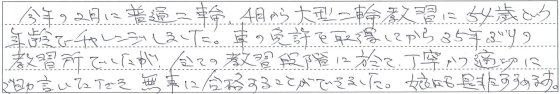 今年の2月に普通二輪、4月から大型二輪教習に54歳という
年齢でチャレンジしました。車の免許を取得してから35年ぶりの
教習所でしたが、全ての教習段階に於て、丁寧かつ適切に
助言いただき無事に合格することができました。 是非おすすめ